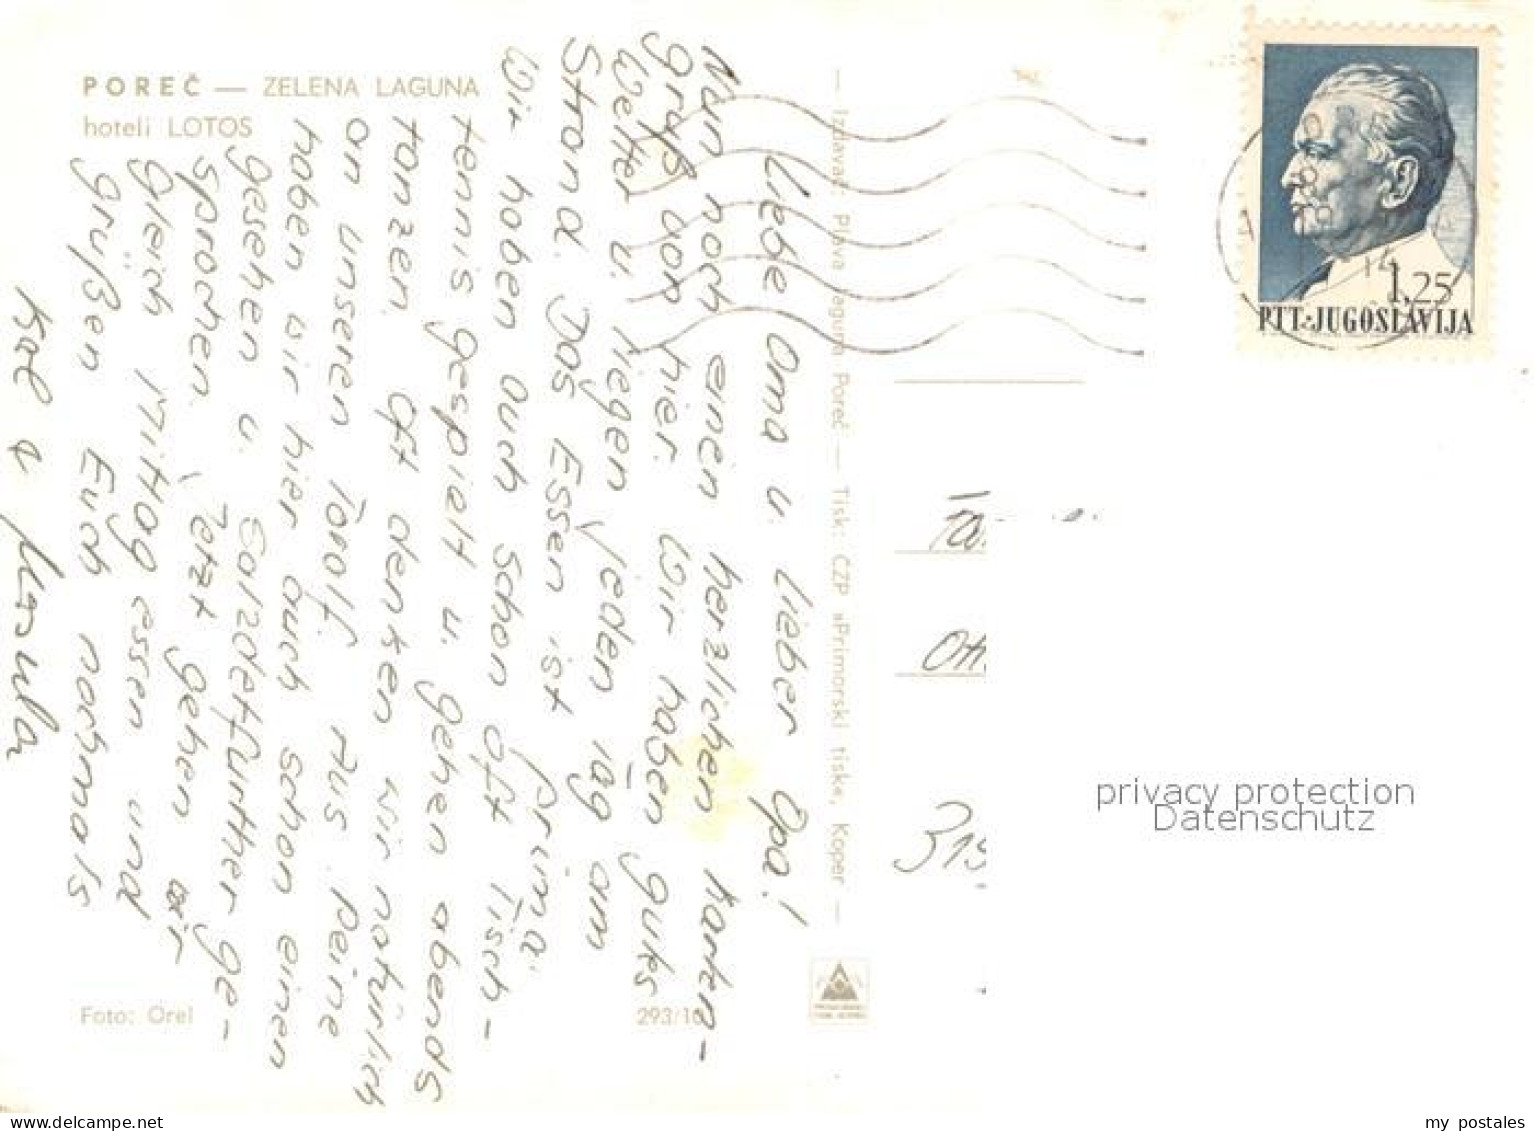 POREČ — ZELENA LAGUNA
hoteli LOTOS
Liebe Oma u. lieber Opa!
Nun noch einen herzlichen Karten-
gruß von hier. Wir haben gutes
Wetter u. liegen jeden Tag am
Strand. Das Essen ist prima.
Wir haben auch schon oft Tisch-
tennis gespielt u. gehen abends
tanzen. Oft denken wir natürlich
an unseren Toralf. Aus Peine
haben wir hier auch schon einen
gesehen u. Salzdetfurther ge-
sprochen. Jetzt gehen wir
gleich Mittag essen und
grüßen Euch nochmals
Foto: Orel
293/10
— Izdavač: Plava laguna Poreč — Tisk: ČZP »Primorski tisk«, Koper —
1,25
PTT·JUGOSLAVIJA
14
privacy protection
Datenschutz
my postales